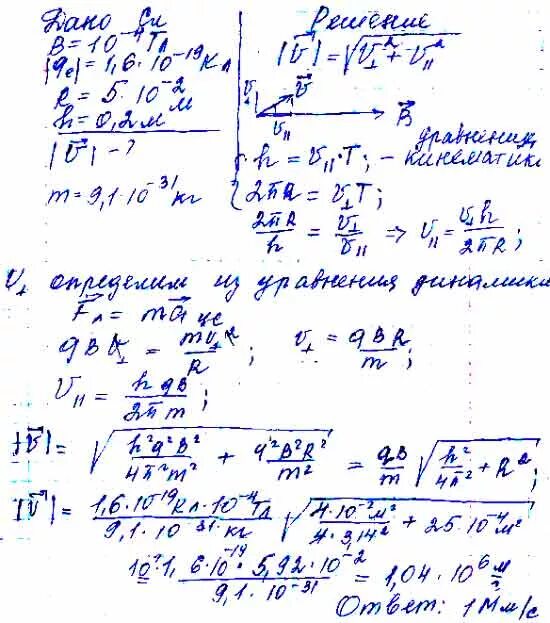 Дано Си
B = 10⁻⁴ Тл
|qe| = 1,6·10⁻¹⁹ Кл
R = 5·10⁻² м
h = 0,2 м
|v⃗| - ?
m = 9,1·10⁻³¹ кг
Решение
|v⃗| = √(v⊥² + v||²)
v⊥ v⃗
v|| B⃗
h = v||·T; - уравнения кинематик
2πR = v⊥T;
2πR/h = v⊥/v|| => v|| = v⊥h/2πR;
v⊥ определим из уравнения динамики
F⃗л = ma⃗цс
qBv⊥ = mv⊥²/R; v⊥ = qBR/m;
v|| = hqB/2πm;
|v⃗| = √(h²q²B²/4π²m² + q²B²R²/m²) = qB/m √(h²/4π² + R²);
|v⃗| = 1,6·10⁻¹⁹Кл·10⁻⁴Тл/9,1·10⁻³¹кг √(4·10⁻²м²/4·3,14² + 25·10⁻⁴м²)
1,6·10⁻¹⁹·5,92·10⁻²/9,1·10⁻³¹ = 1,04·10⁶ м/с
Ответ: 1Мм/с